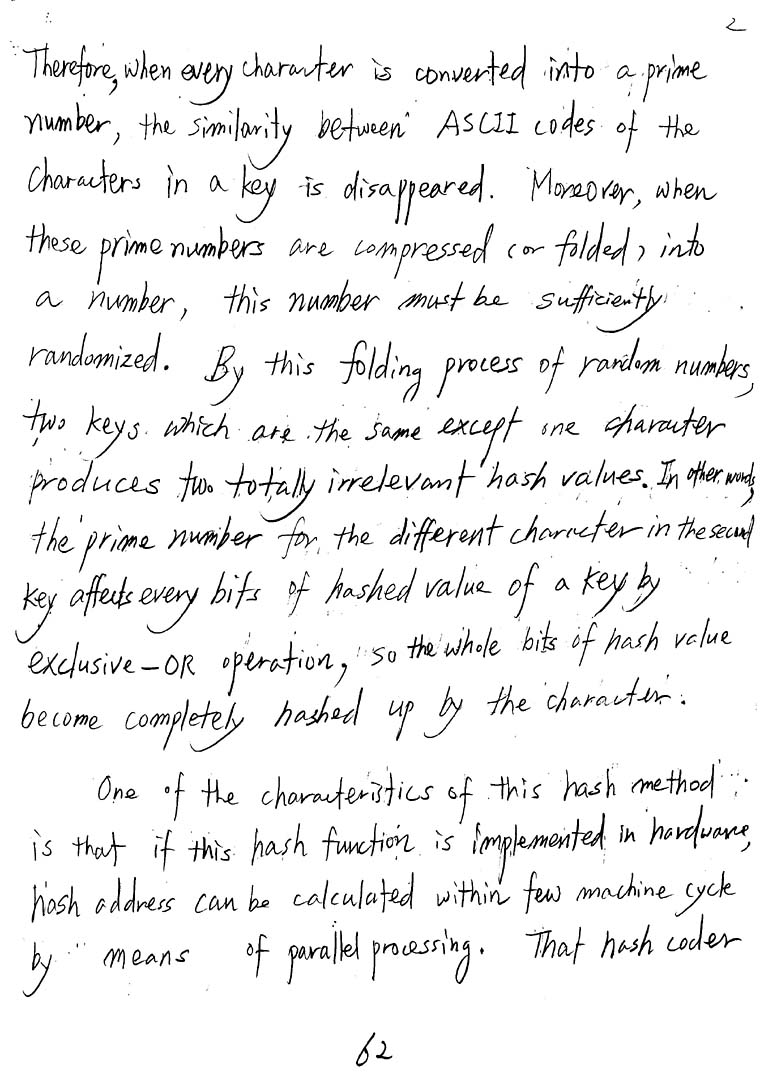 2
Therefore, when every character is converted into a prime
number, the similarity between ASCII codes of the
characters in a key is disappeared. Moreover, when
these prime numbers are compressed (or folded) into
a number, this number must be sufficiently
randomized. By this folding process of random numbers,
two keys which are the same except one character
produces two totally irrelevant hash values. In other words,
the prime number for the different character in the second
key affects every bits of hashed value of a key by
exclusive-OR operation, so the whole bits of hash value
become completely hashed up by the character.
One of the characteristics of this hash method
is that if this hash function is implemented in hardware,
hash address can be calculated within few machine cycle
by means of parallel processing. That hash coder
62